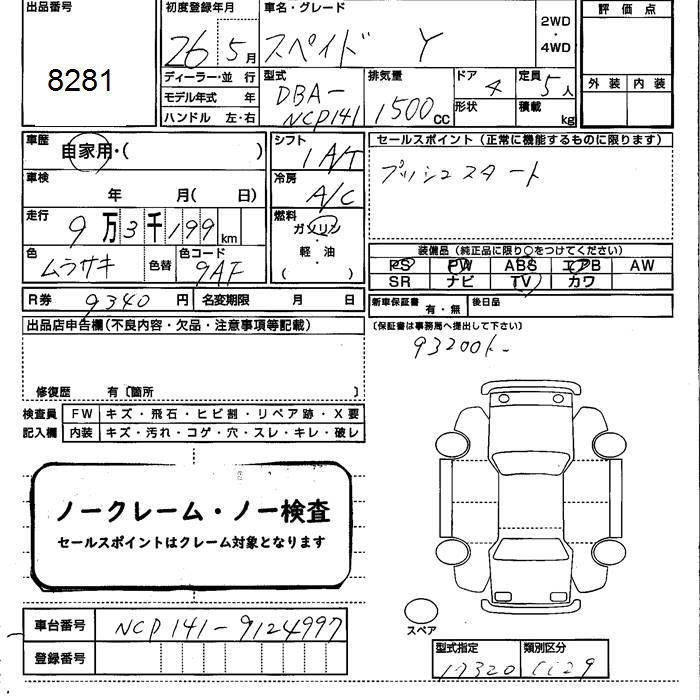 出品番号 初度登録年月 車名・グレード 評価点
8281 26 5月 スペイド Y 2WD・4WD
外装 内装
ディーラー・並 行 型式 DBA-NCP141 排気量 1500cc ドア 4 定員 5人
モデル年式 年 形状 積載 kg
ハンドル 左・右
車歴 自家用・( ) シフト 1A/T セールスポイント(正常に機能するものに限ります)
車検 年 月( 日) 冷房 A/C プッシュスタート
走行 9万3千199km 燃料 ガソリン・軽油 ( )
色 ムラサキ 色替 色コード 9AF
装備品(純正品に限り○をつけてください)
PS PW ABS エアB AW
SR ナビ TV カワ
R券 9340円 名変期限 月 日 新車保証書 有・無 後日品
(保証書は事務局へ提出して下さい)
出品店申告欄(不良内容・欠品・注意事項等記載)
93200k-
修復歴 有〔箇所 〕
検査員 FW キズ・飛石・ヒビ割・リペア跡・X要
記入欄 内装 キズ・汚れ・コゲ・穴・スレ・キレ・破レ
ノークレーム・ノー検査
セールスポイントはクレーム対象となります
スペア
車台番号 NCP141-9124997
登録番号
型式指定 類別区分
17320 1129